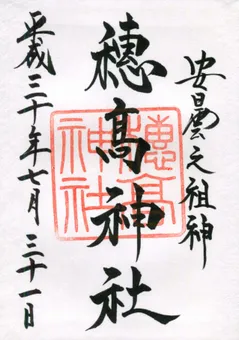 安曇之祖神
穂高神社
穂高神社
平成三十年七月三十一日